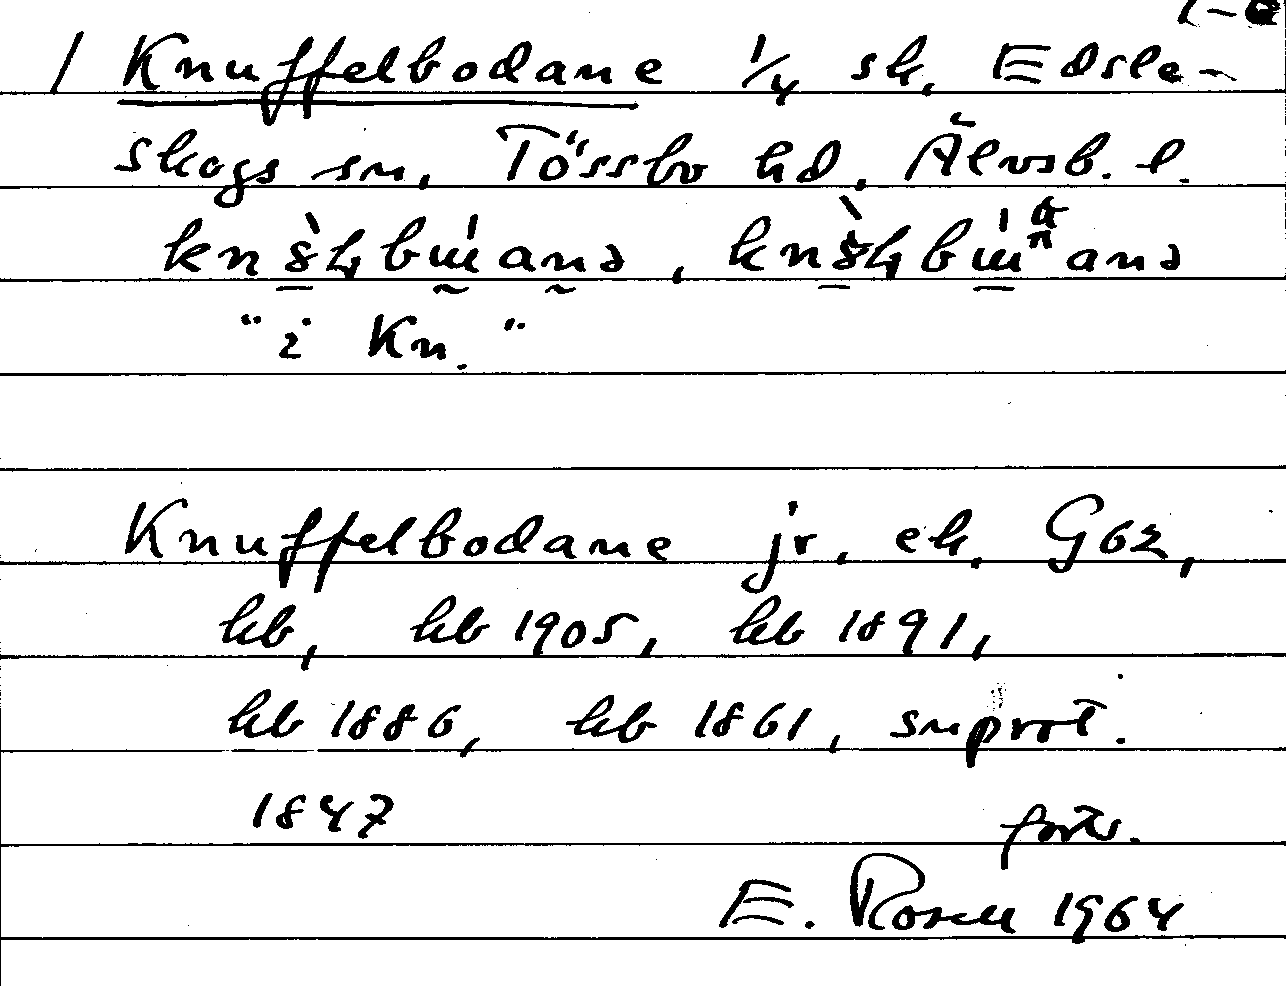 1 Knuffelbodane 1/4 sk. Edsle-
skogs sn, Tössbo hd, Älvsb. l.
"i Kn."
Knuffelbodane jr, ek. G62,
hb, hb 1905, hb 1891,
hb 1886, hb 1861, snprot.
1847 forts.
E. Rosell 1964